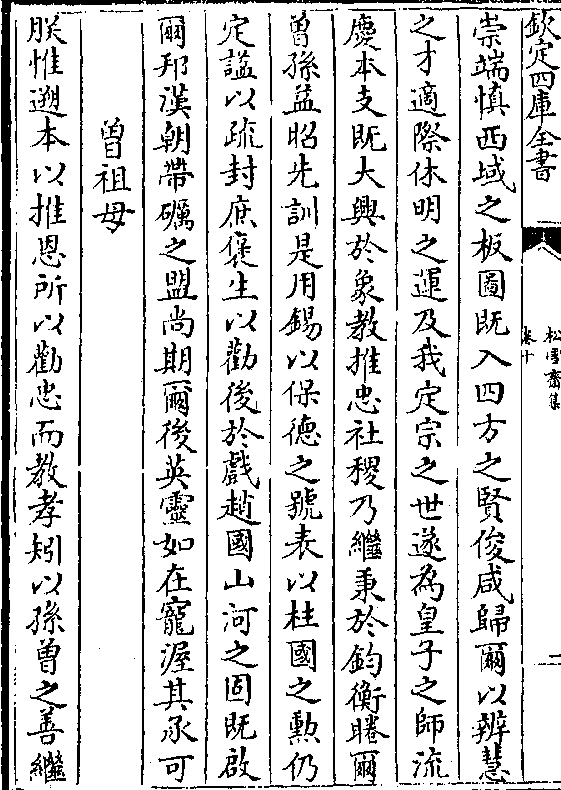 欽定四庫全書
松雪齋集
卷十
二
崇端慎西域之板圖既入四方之賢俊咸歸爾以辨慧
之才適際休明之運及我定宗之世遂為皇子之師流
慶本支既大興於象教推忠社稷乃繼秉於鈞衡睠爾
曾孫益昭先訓是用錫以保德之號表以柱國之勲仍
定諡以疏封庶褒生以勸後於戲趙國山河之固既啟
爾邦漢朝帶礪之盟尚期爾後英靈如在寵渥其承可
曽祖母
朕惟遡本以推恩所以勸忠而教孝矧以孫曽之善繼